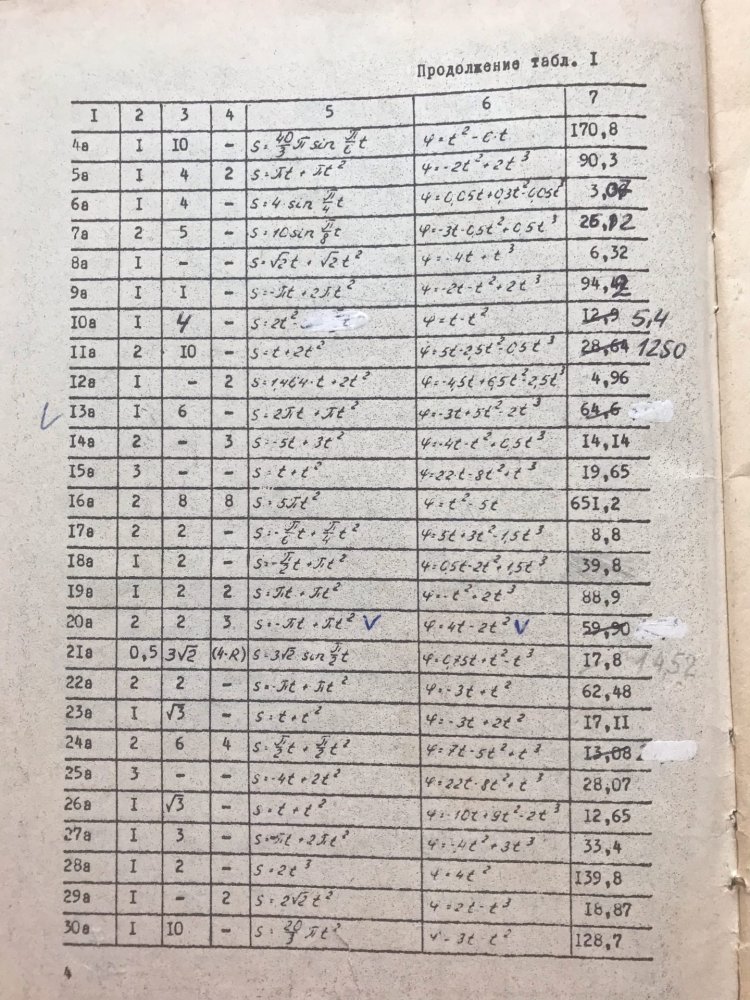 Продолжение табл. I
I 2 3 4 5 6 7
4а I IO - S=40/3 π sin π/6 t φ=t²-6·t I70,8
5а I 4 2 S=πt+πt² φ=-2t²+2t³ 90,3
6а I 4 - S=4·sin π/4 t φ=0,05t+0,3t²-0,05t³ 3,07
7а 2 5 - S=10sin π/8 t φ=-3t-0,5t²+0,5t³ 26,12
8а I - - S=√2t+√2t² φ=-4t+t³ 6,32
9а I I - S=-πt+2πt² φ=-2t-t²+2t³ 94,2
I0а I 4 - S=2t²- φ=t-t² I2,9 5,4
IIа 2 IO - S=t+2t² φ=5t-2,5t²-0,5t³ 28,64 1250
I2а I - 2 S=1,464·t+2t² φ=-4,5t+6,5t²-2,5t³ 4,96
V I3а I 6 - S=2πt+πt² φ=-3t+5t²-2t³ 64,6
I4а 2 - 3 S=-5t+3t² φ=-4t-t²+0,5t³ I4,I4
I5а 3 - - S=t+t² φ=22t-8t²+t³ I9,65
I6а 2 8 8 S=5πt² φ=t²-5t 65I,2
I7а 2 2 - S=-π/6 t+π/4 t² φ=5t+3t²-1,5t³ 8,8
I8а I 2 - S=-π/2 t+πt² φ=0,5t-2t²+1,5t³ 39,8
I9а I 2 2 S=πt+πt² φ=-t²+2t³ 88,9
20а 2 2 3 S=-πt+πt² V φ=4t-2t² V 59,90
2Iа 0,5 3√2 (4-R) S=3√2 sin π/2 t φ=0,75t+t²-t³ I7,8 14,52
22а 2 2 - S=-πt+πt² φ=-3t+t² 62,48
23а I √3 - S=t+t² φ=-3t+2t² I7,II
24а 2 6 4 S=π/2 t+π/2 t² φ=7t-5t²+t³ I3,08
25а 3 - - S=-4t+2t² φ=22t-8t²+t³ 28,07
26а I √3 - S=t+t² φ=-10t+9t²-2t³ I2,65
27а I 3 - S=-πt+2πt² φ=-4t²+3t³ 33,4
28а I 2 - S=2t³ φ=4t² I39,8
29а I - 2 S=2√2t² φ=2t-t³ I8,87
30а I IO - S=20/3 πt² φ=3t-t² I28,7
4